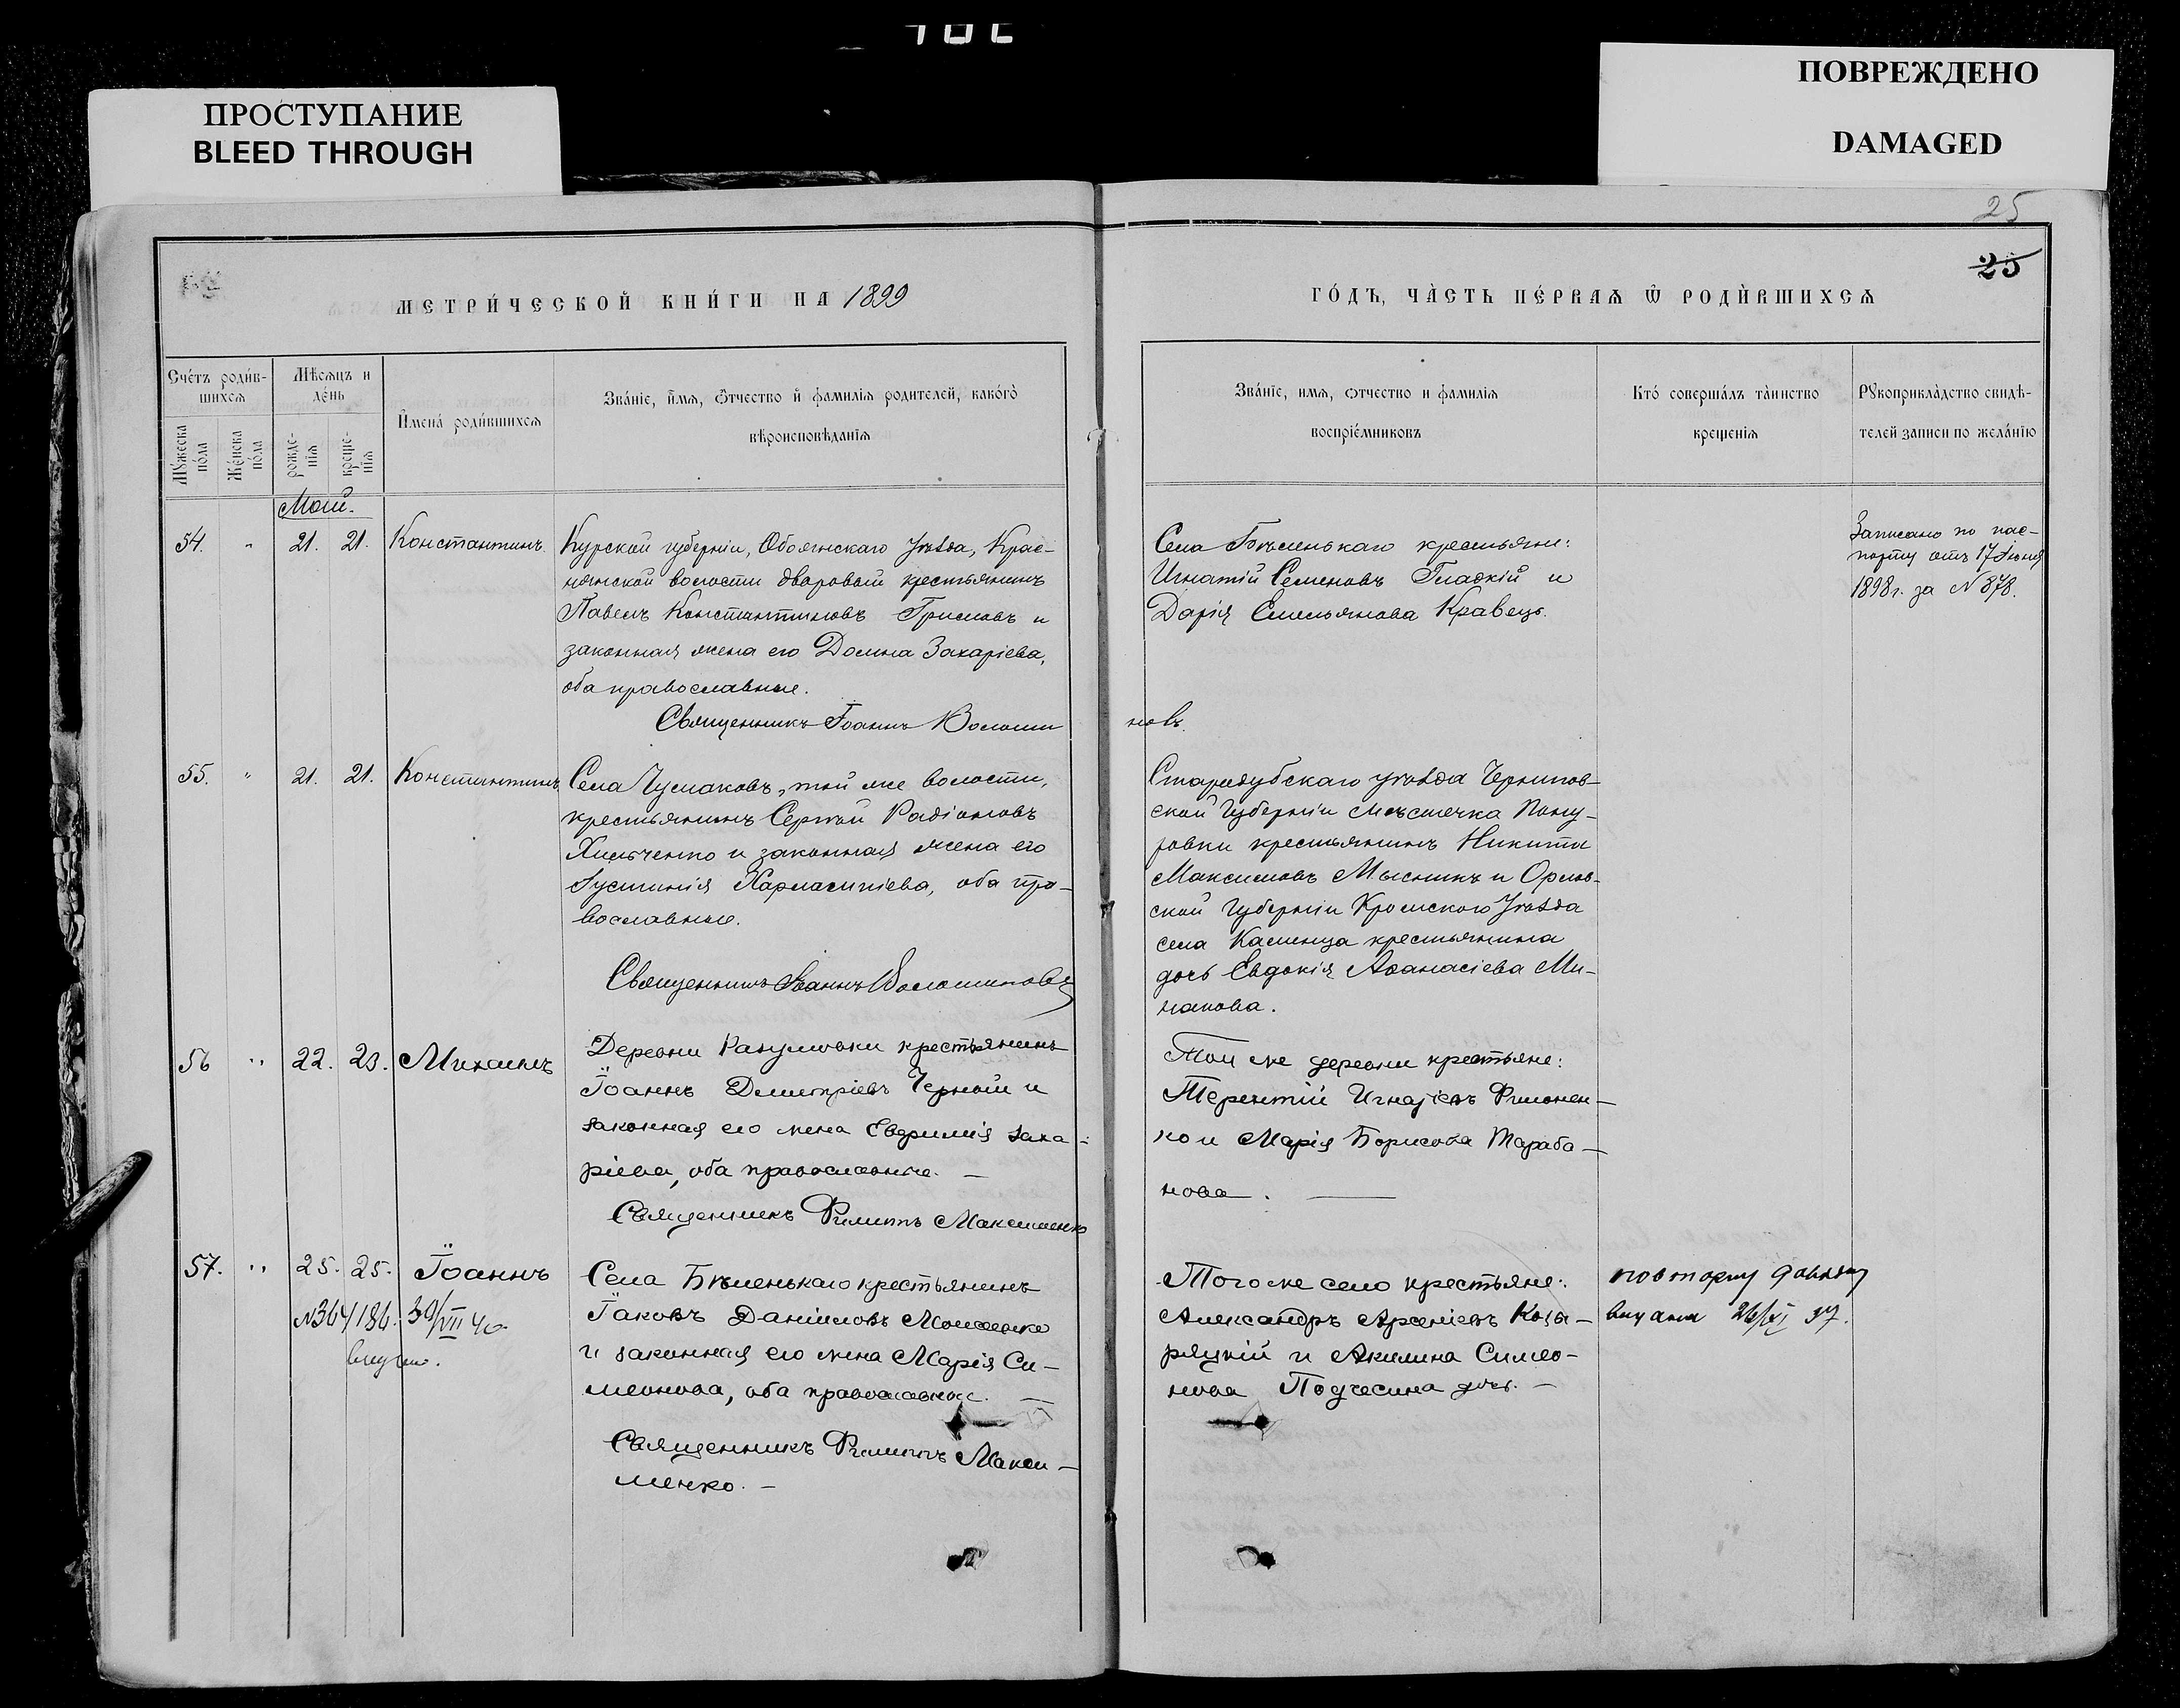 ПРОСТУПАНИЕ
BLEED THROUGH
ПОВРЕЖДЕНО
DAMAGED
25
25
МЕТРИ́ЧЕСКОЙ КНИ́ГИ НА 1899
ГО́ДЪ, ЧА̀СТЬ ПЕ́РВАѦ Ѡ҆ РОДЍВШИХСѦ
Сче́тъ роди́в-
шихсѧ
Мѣсѧцъ и
де́нь
И҆мена̀ роди́вшихсѧ
Зва́нїе, и҆́мѧ, ѻ҆́тчество и҆ фамилїѧ родителей, како́гѡ
вѣроисповѣданїѧ
Мꙋжеска
по́ла
Же́нска
по́ла
рожде-
нїѧ
креще-
нїѧ
Зва́нїе, имѧ, ѻтчество и фамилїѧ
воспрїе́мниковъ
Кто́ соверша́лъ та̀инство
крещенїѧ
Рꙋкоприкла̀дство свидѣ-
телей записи по жела́нїю
Май.
54. " 21. 21. Константинъ.
Курской губерніи, Обоянскаго уѣзда, Крас-
нянской волости дворовый крестьянинъ
Павелъ Константиновъ и
законная жена его Домна Захаріева,
оба православные.
Священникъ Іоаннъ Волоши
новъ.
Села Бѣленькаго крестьяне:
Игнатій Семеновъ Гладкій и
Дарія Емельянова Кравецъ.
Записано по пас-
порту отъ 17 Іюня
1898 г. за № 878.
55. " 21. 21. Константинъ
Села Чумаковъ, той же волости,
крестьянинъ Сергѣй Радіоновъ
Хильченко и законная жена его
Іустинія Харлампіева, оба пра-
вославные.
Священникъ Іоаннъ Волошиновъ
Стародубскаго уѣзда Чернигов-
ской Губерніи мѣстечка Пону-
ровки крестьянинъ Никита
Максимовъ Мысникъ и Орлов-
ской Губерніи Кромского Уѣзда
села Каменца крестьянина
дочь Евдокія Аѳанасіева Ми-
накова.
56 " 22. 23. Михаилъ
Деревни Разумовки крестьянинъ
Іоаннъ Димитріевъ Черный и
законная его жена Евфимія Заха-
ріева, оба православные. —
Священникъ Филиппъ Максименко
Той же деревни крестьяне:
Терентій Игнатіевъ Филонен-
ко и Марія Борисова Тараба-
нова. —
57. " 25. 25. Іоаннъ
№364/186. 30/VII 40
Села Бѣленькаго крестьянинъ
Іаковъ Даніиловъ
и законная его жена Марія Си-
меонова, оба православные. —
Священникъ Филиппъ Макси-
менко. —
Того же село крестьяне:
Александръ Арсеніевъ Коза-
ряцкій и Акилина Симео-
нова дочь. —
повторну довідку
видали 26/XI 37.